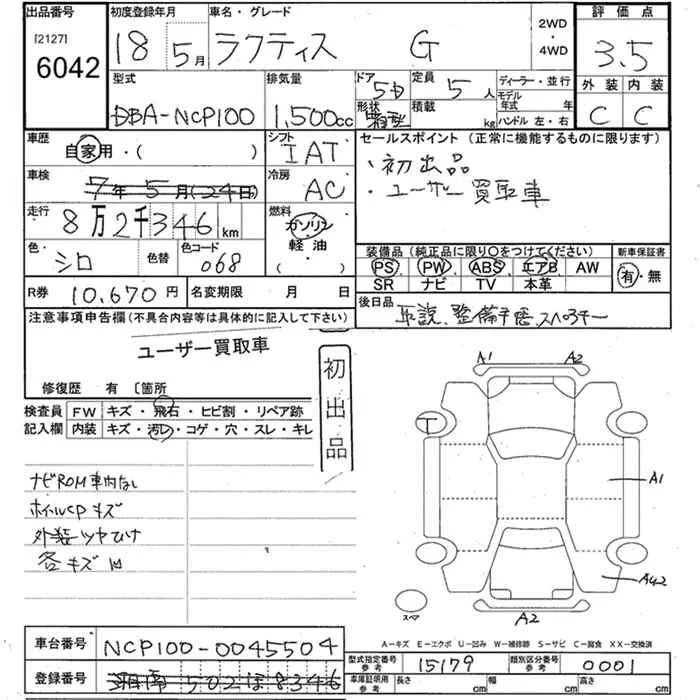 出品番号 初度登録年月 車名・グレード 2WD・4WD 評価点
[2127] 6042 18 5月 ラクティス G 3.5
型式 排気量 ドア 5 定員 5人 ディーラー・並行 外装 内装
DBA-NCP100 1,500cc 形状 箱型 積載 kg モデル年式 年 ハンドル 左・右 C C
車歴 自家用・( ) シフト IAT セールスポイント (正常に機能するものに限ります)
・初出品
・ユーザー買取車
車検 7年5月(24日) 冷房 AC
走行 8万2千346km 燃料 ガソリン・軽油・( )
色・シロ 色替 色コード 068 装備品 (純正品に限り○をつけてください) 新車保証書
PS PW ABS エアB AW 有・無
SR ナビ TV 本革
R券 10,670円 名変期限 月 日 後日品 取説、整備手帳、スペアキー
注意事項申告欄 (不具合内容等は具体的に記入して下さい)
ユーザー買取車
初出品
修復歴 有 〔箇所
検査員記入欄 FW キズ・飛石・ヒビ割・リペア跡
内装 キズ・汚レ・コゲ・穴・スレ・キレ
ナビROM車内なし
ホイルCPキズ
外装ツヤひけ
各キズ凹
A1 A2
T
A1
A42
スペア A2
A-キズ E-エクボ U-凹み W-補修跡 S-サビ C-腐食 XX-交換済
車台番号 NCP100-0045504 型式指定番号 参考 15179 類別区分番号 参考 0001
登録番号 湘南 502 ほ 8346 車庫証明用 参考 長さ cm 幅 cm 高さ cm